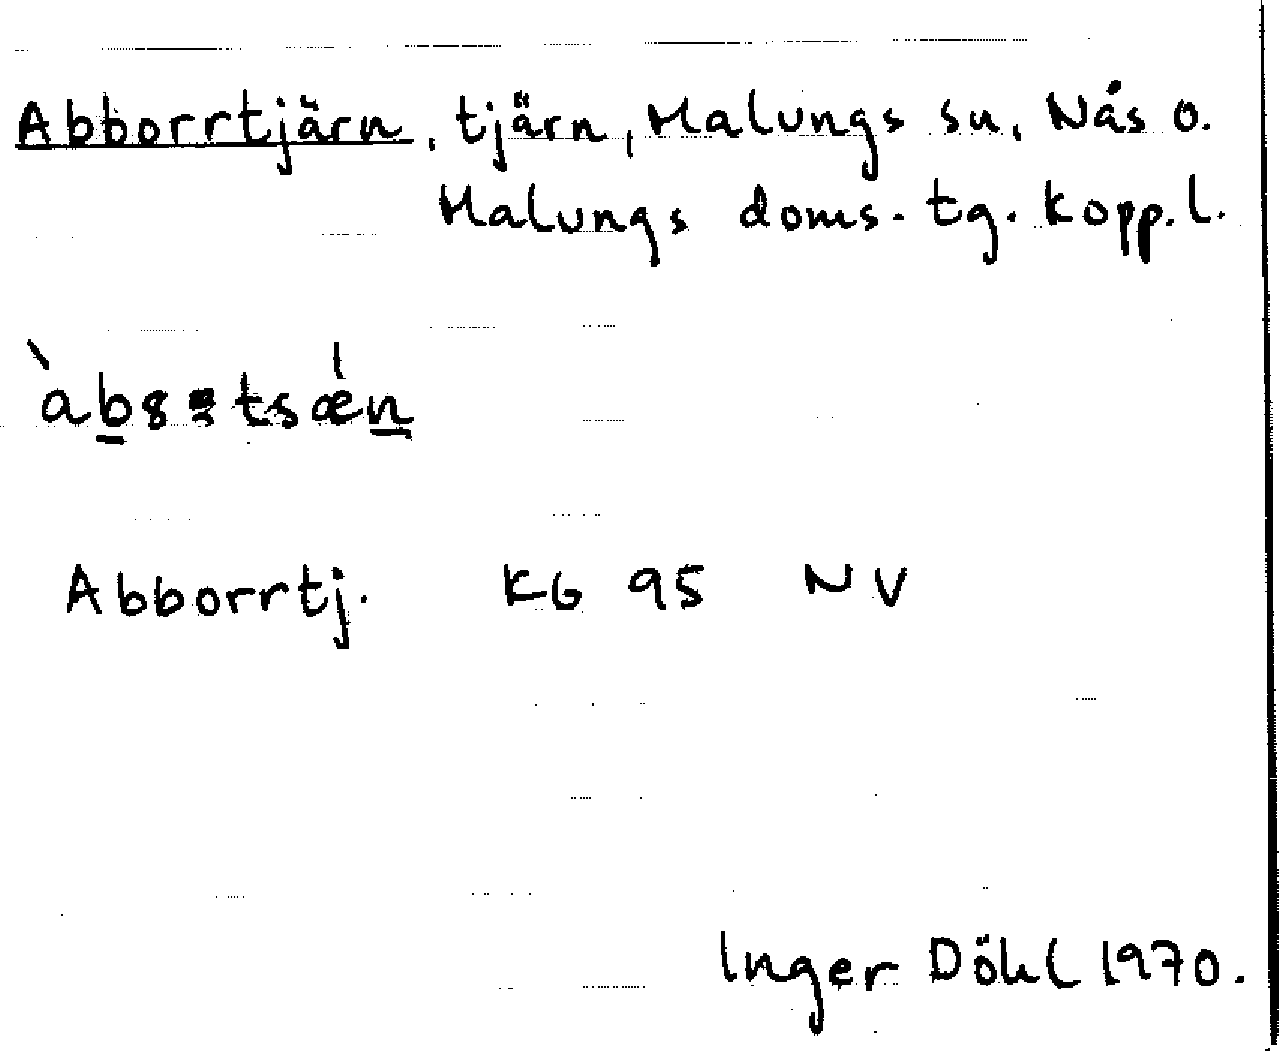 Abborrtjärn, tjärn, Malungs sn, Nås o.
Malungs doms. tg. Kopp. l.
Abborrtj. KG 95 NV
Inger Döhl 1970.